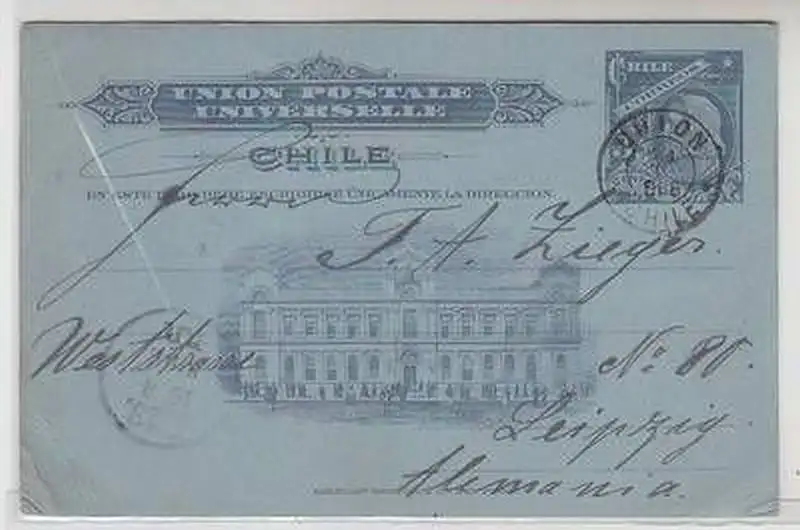 UNION POSTALE
UNIVERSELLE
CHILE
EN ESTE LADO DEBE ESCRIBIRSE UNICAMENTE LA DIRECCION.
CHILE
UNION
CHILE
F. A. Zieger.
Weststrasse No. 80.
Leipzig.
Alemania.